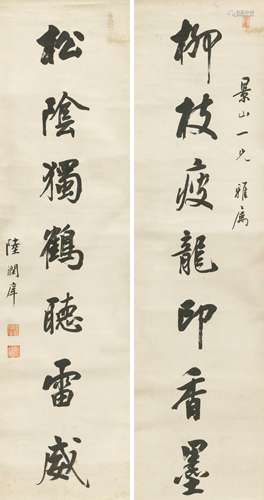 景山一兄雅属
柳枝瘦龍印香墨
松陰獨鶴聽雷威
陸潤庠